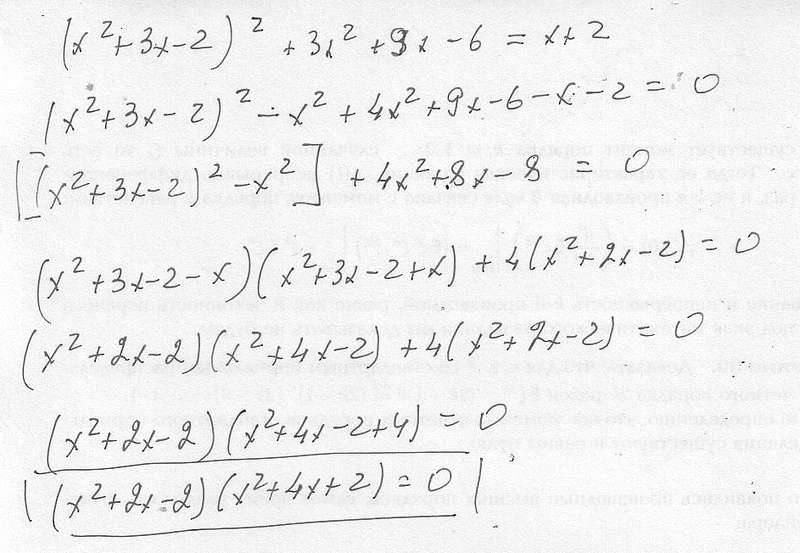 (x²+3x-2)² +3x²+9x-6 = x+2
(x²+3x-2)² - x² + 4x²+9x-6-x-2 = 0
[(x²+3x-2)² - x²] + 4x²+8x-8 = 0
(x²+3x-2-x)(x²+3x-2+x) + 4(x²+2x-2) = 0
(x²+2x-2)(x²+4x-2) + 4(x²+2x-2) = 0
(x²+2x-2)(x²+4x-2+4) = 0
(x²+2x-2)(x²+4x+2) = 0